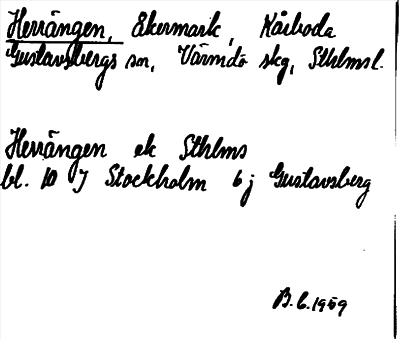 Herrängen, Åkermark, Kårboda
Gustavsbergs sn, Värmdö skg, Sthlmsl.
Herrängen ek Sthlms
bl. 10 J Stockholm 6 j Gustavsberg
B. C. 1959